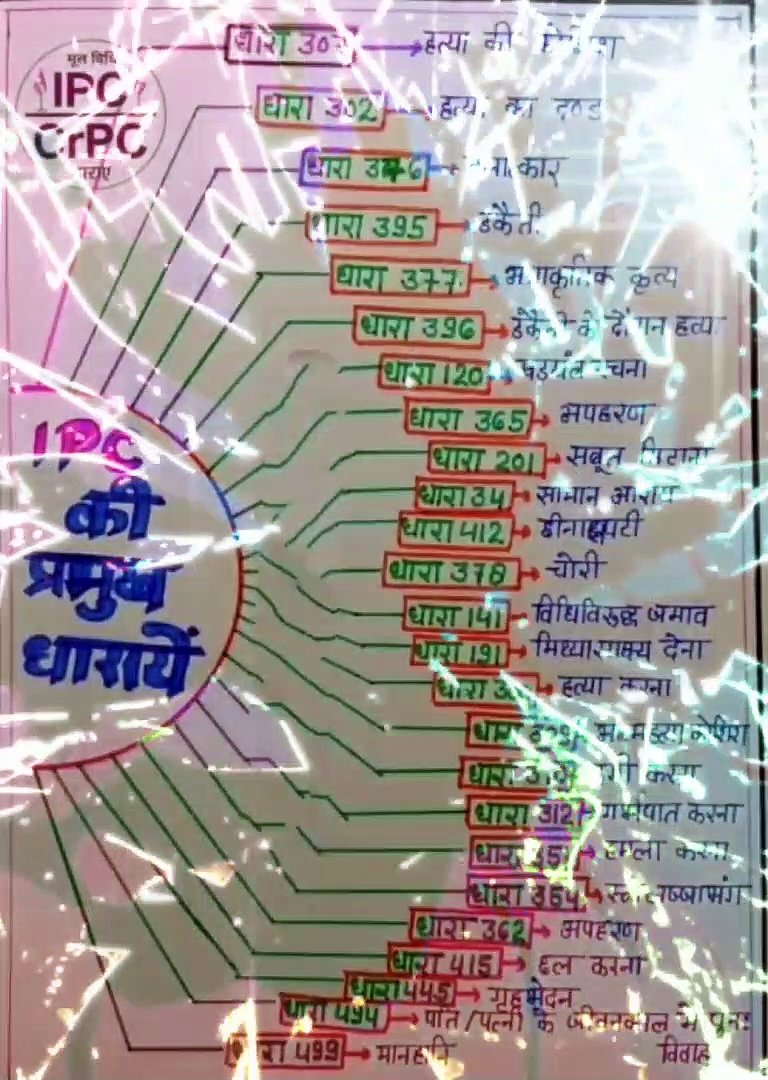 मूल विधि
IPC
CrPC
धाराएं
धारा 307 → हत्या की
धारा 302 → हत्या का दण्ड
धारा 376 →
धारा 395 → डकैती
धारा 377 → अप्राकृतिक कृत्य
धारा 396 → डकैती के दौरान हत्या
धारा 120 → षडयंत्र रचना
धारा 365 → अपहरण
धारा 201 → सबूत मिटाना
धारा 34 → सामान आशय
धारा 412 → छीनाझपटी
धारा 378 → चोरी
धारा 141 → विधिविरुद्ध जमाव
धारा 191 → मिथ्यासाक्ष्य देना
धारा → हत्या करना
धारा
धारा → करना
धारा 312 → गर्भपात करना
धारा → हमला करना
धारा 354 → स्त्रीलज्जाभंग
धारा 362 → अपहरण
धारा 415 → छल करना
धारा 445 → गृहभेदन
धारा 494 → पति/पत्नी के जीवनकाल में पुनः
विवाह
धारा 499 → मानहानि
IPC
की
प्रमुख
धारायें